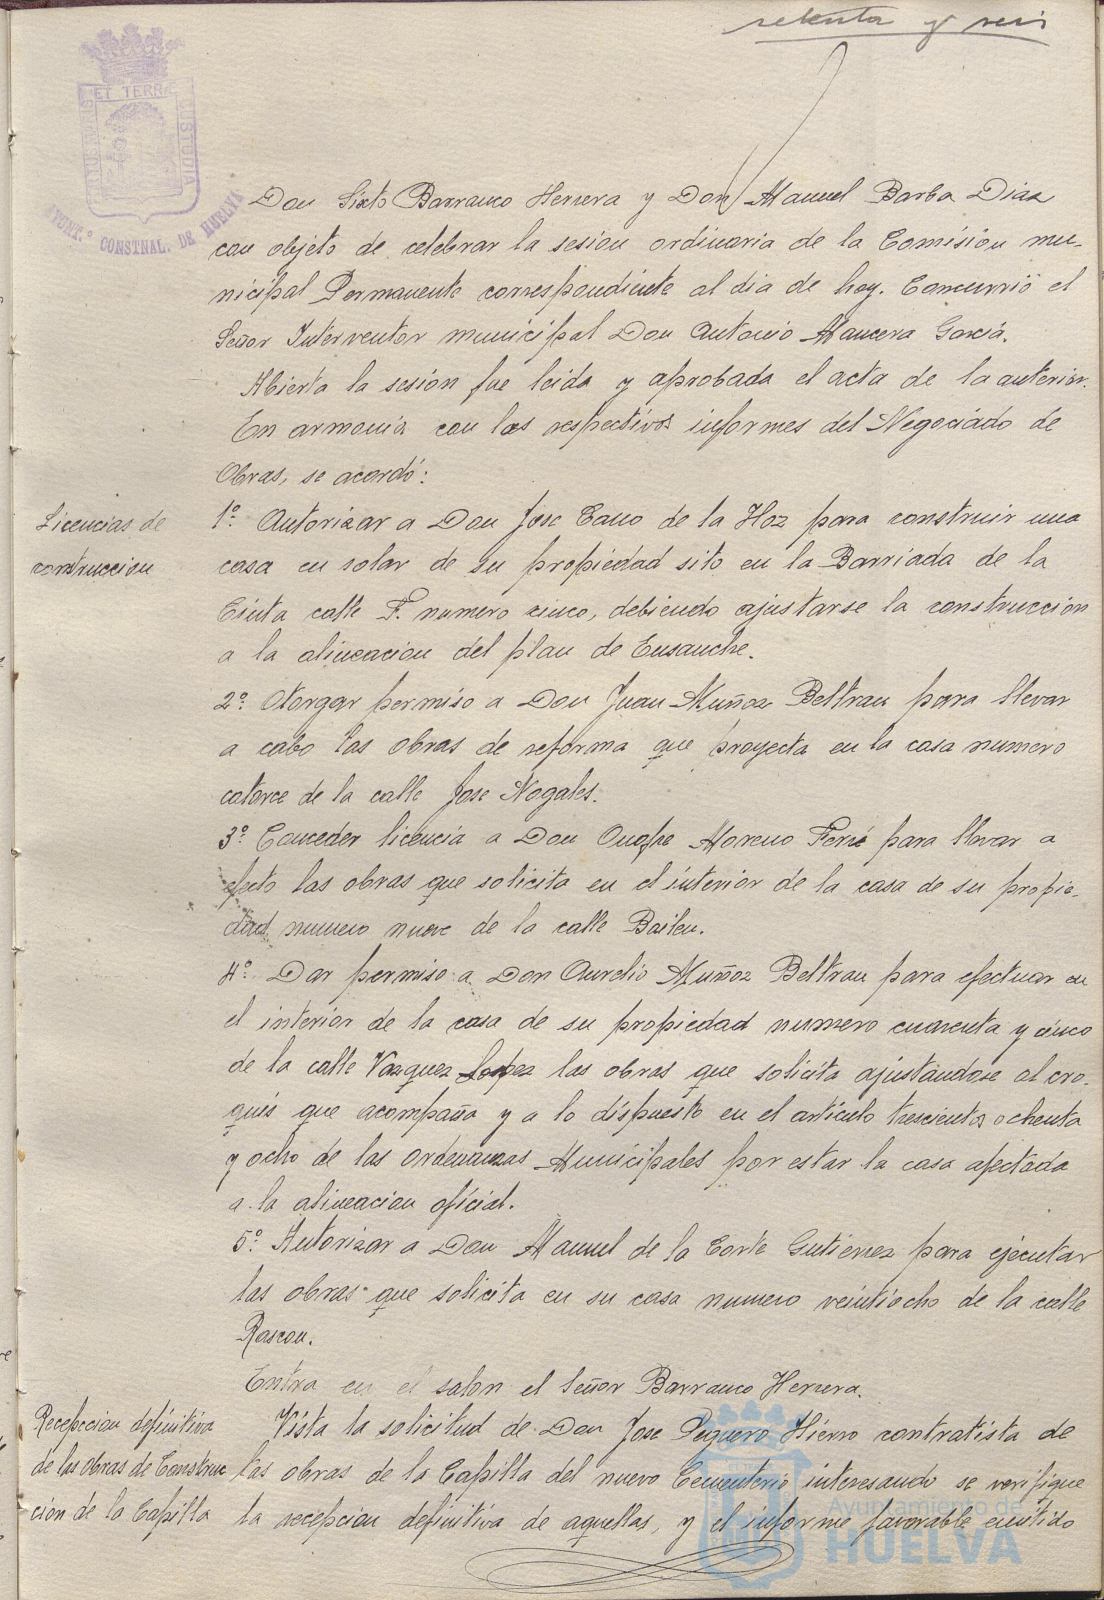 setenta y seis
ET TERRÆ
CUSTODIA
AYUNT.º CONSTNAL. DE HUELVA
Don Sixto Barranco Herrera y Don Manuel Barba Diaz
con objeto de celebrar la sesion ordinaria de la Comision mu-
nicipal Permanente correspondiente al dia de hoy. Concurrió el
Señor Interventor municipal Don Antonio Mancera Garcia.
Abierta la sesion fue leida y aprobada el acta de la anterior.
En armonia con los respectivos informes del Negociado de
Obras, se acordó:
Licencias de
construccion
1º. Autorizar a Don Jose Cano de la Hoz para construir una
casa en solar de su propiedad sito en la Barriada de la
Cinta calle F. numero cinco, debiendo ajustarse la construccion
a la alineacion del plan de Ensanche.
2º. Otorgar permiso a Don Juan Muñoz Beltran para llevar
a cabo las obras de reforma que proyecta en la casa numero
catorce de la calle Jose Nogales.
3º. Conceder licencia a Don Onofre Moreno Feria para llevar a
efecto las obras que solicita en el interior de la casa de su propie-
dad numero nueve de la calle Bailen.
4º. Dar permiso a Don Aurelio Muñoz Beltran para efectuar en
el interior de la casa de su propiedad numero cuarenta y cinco
de la calle Vazquez Lopez las obras que solicita ajustandose al cro-
quis que acompaña y a lo dispuesto en el articulo trescientos ochenta
y ocho de las Ordenanzas Municipales por estar la casa afectada
a la alineacion oficial.
5º. Autorizar a Don Manuel de la Corte Gutierrez para ejecutar
las obras que solicita en su casa numero veintiocho de la calle
Rascon.
Entra en el salon el Señor Barranco Herrera.
Recepcion definitiva
de las obras de Construc
cion de la Capilla
Vista la solicitud de Don Jose Peguero Hierro contratista de
las obras de la Capilla del nuevo Cementerio interesando se verifique
la recepcion definitiva de aquellas, y el informe favorable emitido
Ayuntamiento de
HUELVA